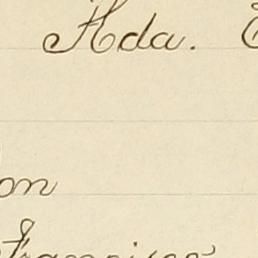 Ada.
on
Francisco